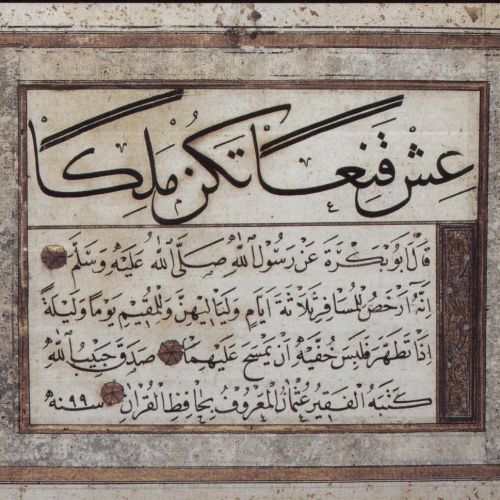 عِشْ قَنِعًا تَكُنْ مَلِكًا
قَالَ اَبُو بَكْرَةَ عَنْ رَسُولِ اللّٰهِ صَلَّى اللّٰهُ عَلَيْهِ وَسَلَّمَ
اِنَّهُ اَرْخَصَ لِلْمُسَافِرِ ثَلَاثَةَ اَيَّامٍ وَلَيَالِيَهُنَّ وَلِلْمُقِيمِ يَوْمًا وَلَيْلَةً
اِذَا تَطَهَّرَ فَلَبِسَ خُفَّيْهِ اَنْ يَمْسَحَ عَلَيْهِمَا صَدَقَ حَبِيبُ اللّٰهِ
كَتَبَهُ الْفَقِيرُ عُثْمَانُ الْمَعْرُوفُ بِحَافِظِ الْقُرْاٰنِ سنه ٩٩